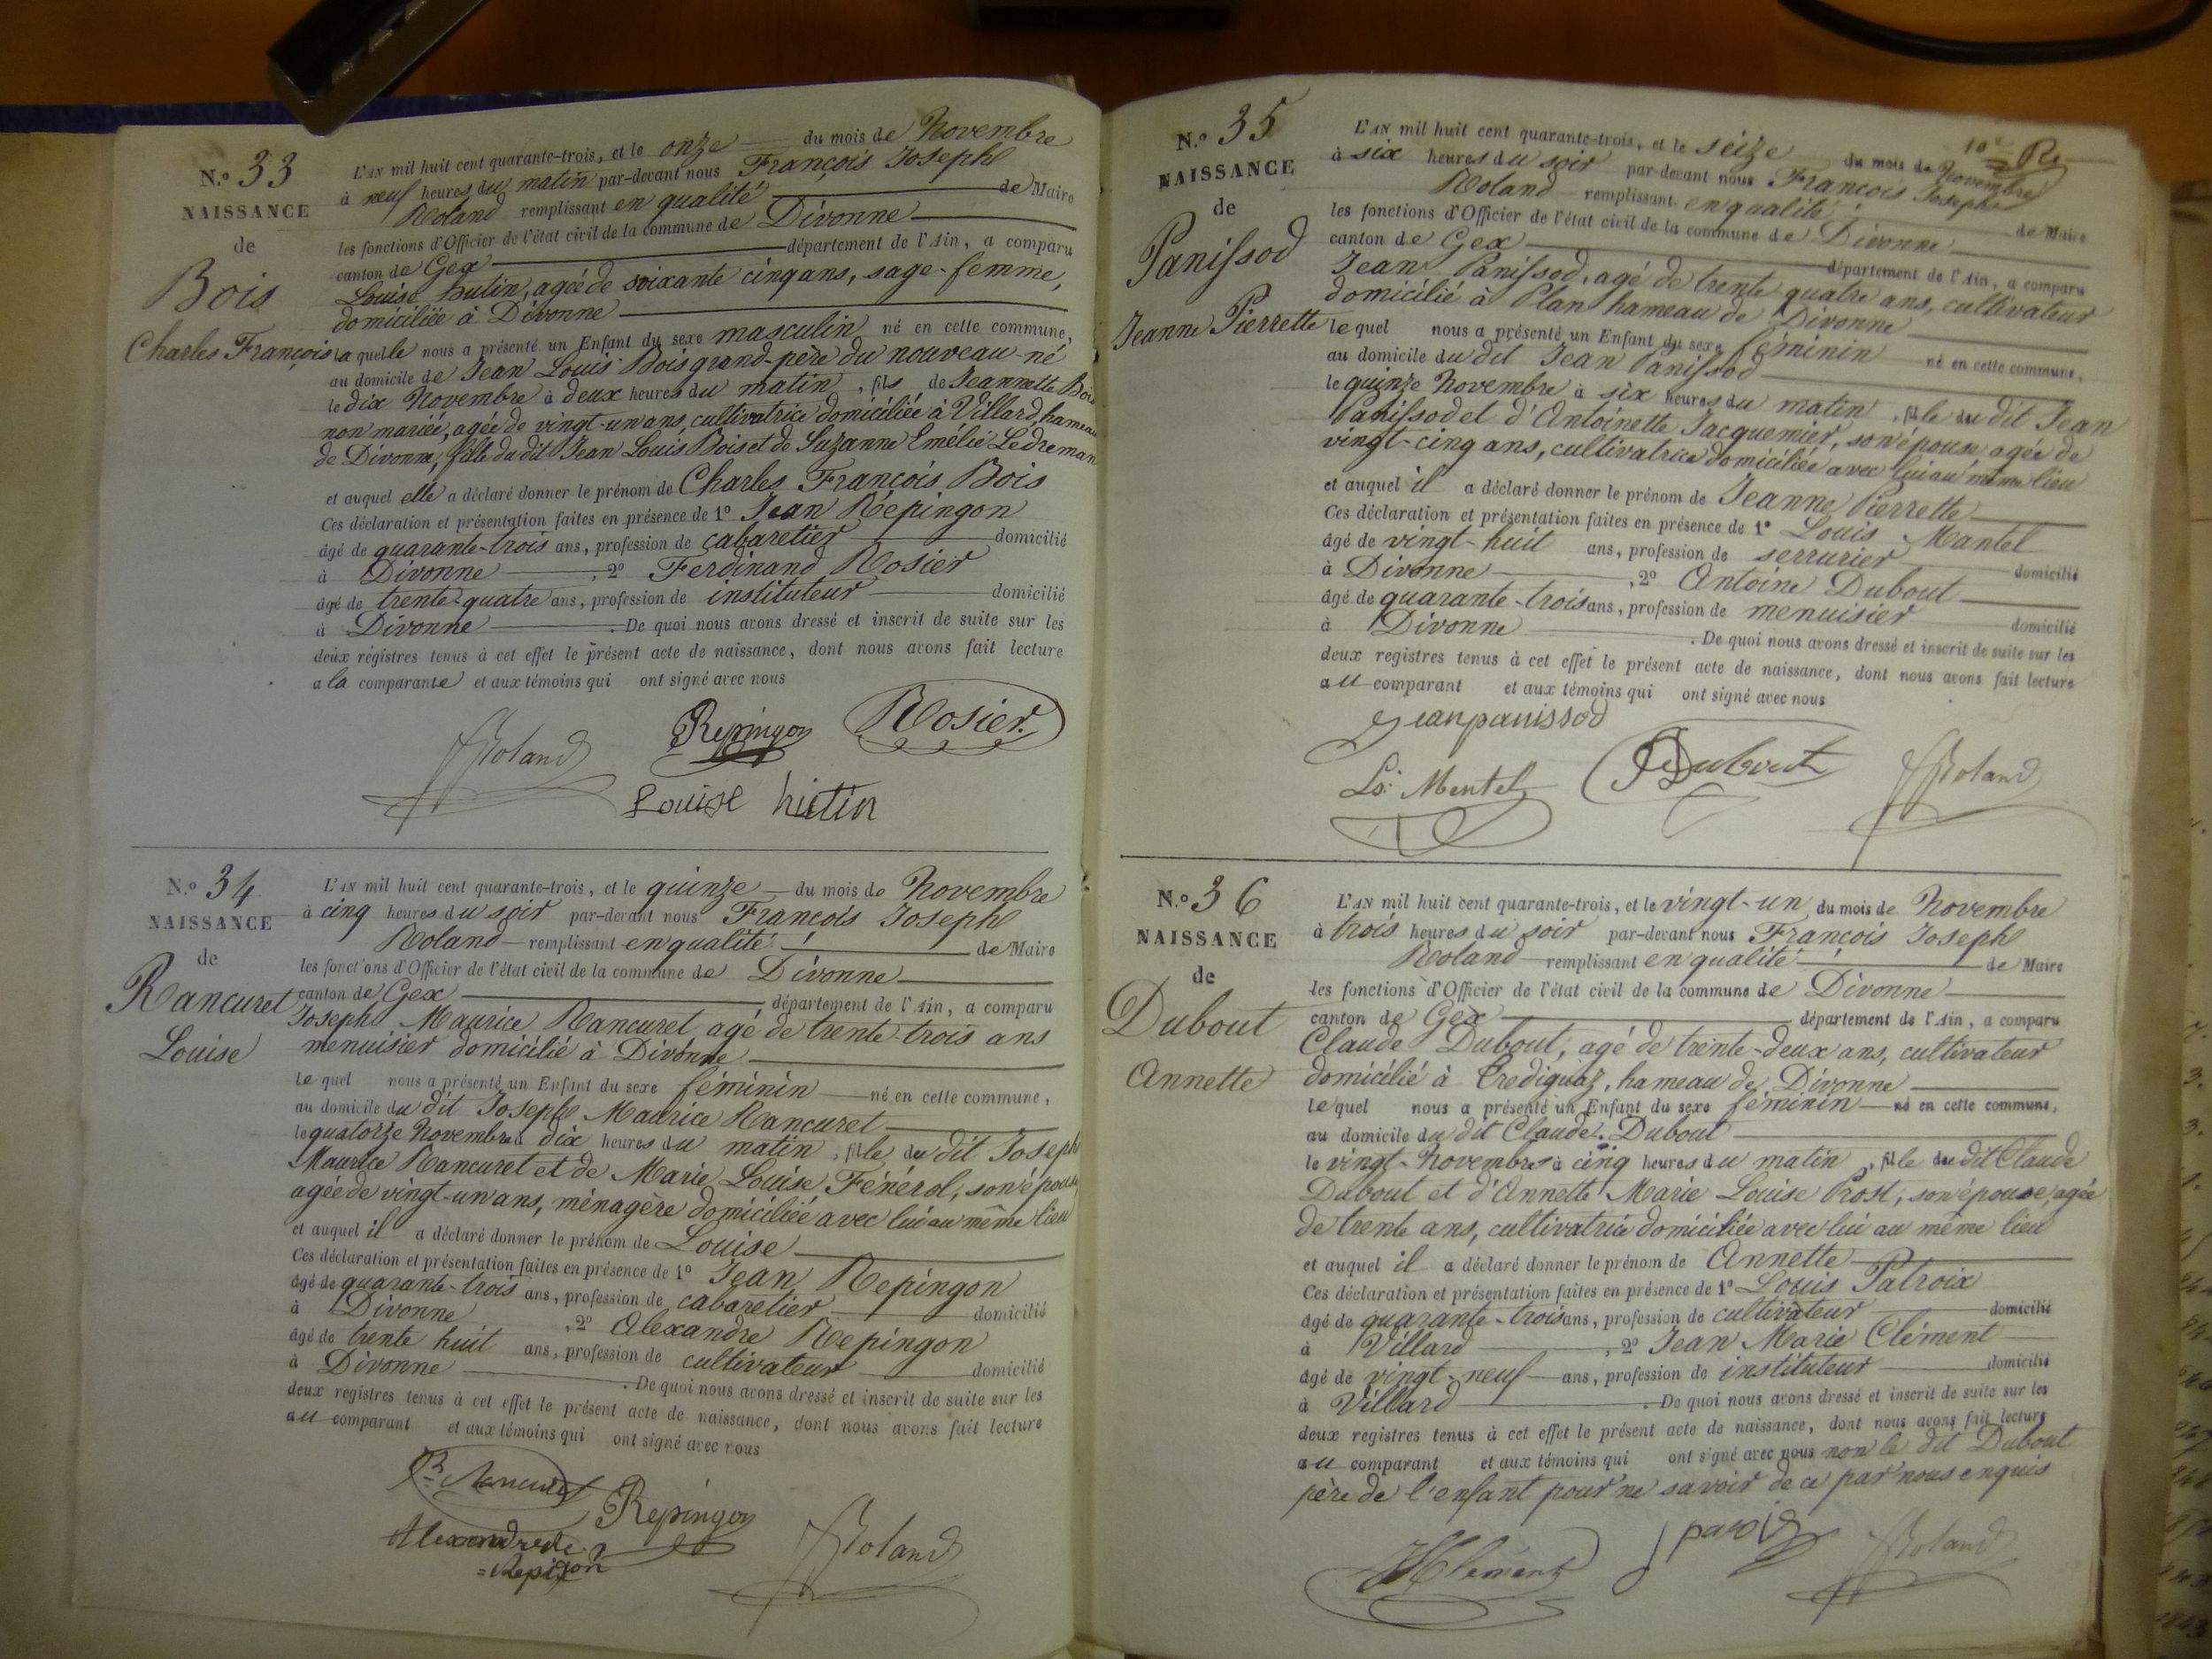 N.º 33
NAISSANCE
de
Bois
Charles François
L'AN mil huit cent quarante-trois, et le onze du mois de Novembre
à neuf heures du matin par-devant nous François Joseph
Roland remplissant en qualité de Maire
les fonctions d'Officier de l'état civil de la commune de Divonne
canton de Gex département de l'Ain, a comparu
Louise hutin, agée de soixante cinq ans, sage-femme,
domiciliée à Divonne
la quelle nous a présenté un Enfant du sexe masculin né en cette commune,
au domicile de Jean Louis Bois grand-père du nouveau-né
le dix Novembre à deux heures du matin, fils de Jeannette Bois
non mariée, agée de vingt-un ans, cultivatrice domiciliée à Villard, hameau
de Divonne, fille du dit Jean Louis Bois et de Suzanne Emélie Ledreman
et auquel elle a déclaré donner le prénom de Charles François Bois
Ces déclaration et présentation faites en présence de 1º Jean Répingon
âgé de quarante-trois ans, profession de cabaretier domicilié
à Divonne, 2º Ferdinand Rosier
âgé de trente-quatre ans, profession de instituteur domicilié
à Divonne. De quoi nous avons dressé et inscrit de suite sur les
deux régistres tenus à cet effet le présent acte de naissance, dont nous avons fait lecture
a la comparante et aux témoins qui ont signé avec nous
Roland Repingon Rosier.
Louise hutin
N.º 34
NAISSANCE
de
Rancuret
Louise
L'AN mil huit cent quarante-trois, et le quinze du mois de Novembre
à cinq heures du soir par-devant nous François Joseph
Roland remplissant en qualité de Maire
les fonctions d'Officier de l'état civil de la commune de Divonne
canton de Gex département de l'Ain, a comparu
Joseph Maurice Rancuret agé de trente-trois ans
menuisier domicilié à Divonne
le quel nous a présenté un Enfant du sexe féminin né en cette commune,
au domicile du dit Joseph Maurice Rancuret
le quatorze Novembre à dix heures du matin, fille du dit Joseph
Maurice Rancuret et de Marie Louise Fénérol, son épouse
agée de vingt-un ans, ménagère domiciliée avec lui au même lieu
et auquel il a déclaré donner le prénom de Louise
Ces déclaration et présentation faites en présence de 1º Jean Repingon
âgé de quarante-trois ans, profession de cabaretier domicilié
à Divonne, 2º Alexandre Repingon
âgé de trente huit ans, profession de cultivateur domicilié
à Divonne. De quoi nous avons dressé et inscrit de suite sur les
deux régistres tenus à cet effet le présent acte de naissance, dont nous avons fait lecture
au comparant et aux témoins qui ont signé avec nous
Repingon
Roland
N.º 35
NAISSANCE
de
Panissod
Jeanne Pierrette
L'AN mil huit cent quarante-trois, et le seize du mois de Novembre
à six heures du soir par-devant nous François Joseph
Roland remplissant en qualité de Maire
les fonctions d'Officier de l'état civil de la commune de Divonne
canton de Gex département de l'Ain, a comparu
Jean Panissod, agé de trente-quatre ans, cultivateur
domicilié à Plan hameau de Divonne
le quel nous a présenté un Enfant du sexe féminin né en cette commune,
au domicile du dit Jean Panissod
le quinze Novembre à six heures du matin, fille du dit Jean
Panissod et d'Antoinette Jacquemier, son épouse, agée de
vingt-cinq ans, cultivatrice domiciliée avec lui au même lieu
et auquel il a déclaré donner le prénom de Jeanne Pierrette
Ces déclaration et présentation faites en présence de 1º Louis Mantel
âgé de vingt-huit ans, profession de serrurier domicilié
à Divonne, 2º Antoine Dubout
âgé de quarante-trois ans, profession de menuisier domicilié
à Divonne. De quoi nous avons dressé et inscrit de suite sur les
deux registres tenus à cet effet le présent acte de naissance, dont nous avons fait lecture
au comparant et aux témoins qui ont signé avec nous
Jean panissod
Ls: Mentel Dubout Roland
N.º 36
NAISSANCE
de
Dubout
Annette
L'AN mil huit cent quarante-trois, et le vingt-un du mois de Novembre
à trois heures du soir par-devant nous François Joseph
Roland remplissant en qualité de Maire
les fonctions d'Officier de l'état civil de la commune de Divonne
canton de Gex département de l'Ain, a comparu
Claude Dubout, agé de trente-deux ans, cultivateur
domicilié à Crediquaz, hameau de Divonne
le quel nous a présenté un Enfant du sexe féminin né en cette commune,
au domicile du dit Claude Dubout
le vingt-Novembre à cinq heures du matin, fille du dit Claude
Dubout et d'Annette Marie Louise Prost, son épouse, agée
de trente ans, cultivatrice domiciliée avec lui au même lieu
et auquel il a déclaré donner le prénom de Annette
Ces déclaration et présentation faites en présence de 1º Louis Patroix
âgé de quarante-trois ans, profession de cultivateur domicilié
à Villard, 2º Jean Marie Clément
âgé de vingt-neuf ans, profession de instituteur domicilié
à Villard. De quoi nous avons dressé et inscrit de suite sur les
deux registres tenus à cet effet le présent acte de naissance, dont nous avons fait lecture
au comparant et aux témoins qui ont signé avec nous non le dit Dubout
père de l'enfant pour ne savoir de ce par nous enquis
Clément Roland